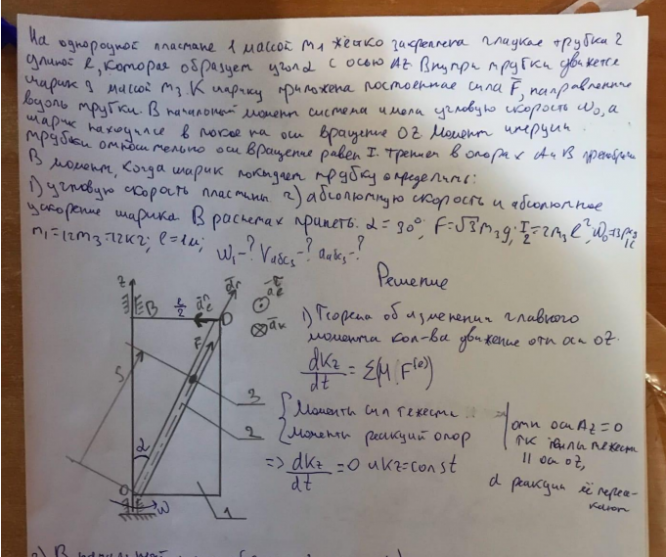 На однородной пластине 1 массой m₁ жёстко закреплена гладкая трубка 2
длиной l, которая образует угол α с осью Az. Внутри трубки движется
шарик 3 массой m₃. К шарику приложена постоянная сила F̄, направленная
вдоль трубки. В начальный момент система имела угловую скорость ω₀, а
шарик находился в покое на оси вращение OZ Момент инерции
трубки относительно оси вращение равен I. Трением в опорах A и B
В момент, когда шарик покидает трубку определить:
1) угловую скорость пластины 2) абсолютную скорость и абсолютное
ускорение шарика. В расчетах принять: α = 30°, F = √3 m₃g; I/2 = 2m₃l²,
m₁ = 12m₃ = 12кг; l = 1м;
ω₁-? Vабс₃-? aабс₃-?
Решение
1) Теорема об изменении главного
момента кол-ва движение отн оси OZ.
dKz/dt = Σ(M F⁽ᵉ⁾)
{ Моменты сил тяжести
Моменты реакций опор
отн оси Az = 0
тк силы тяжести
|| оси OZ,
а реакции её пересе-
кают
=> dKz/dt = 0 и Kz = const
z
B
l/2
D
F
S
α
3
2
1
O
ω